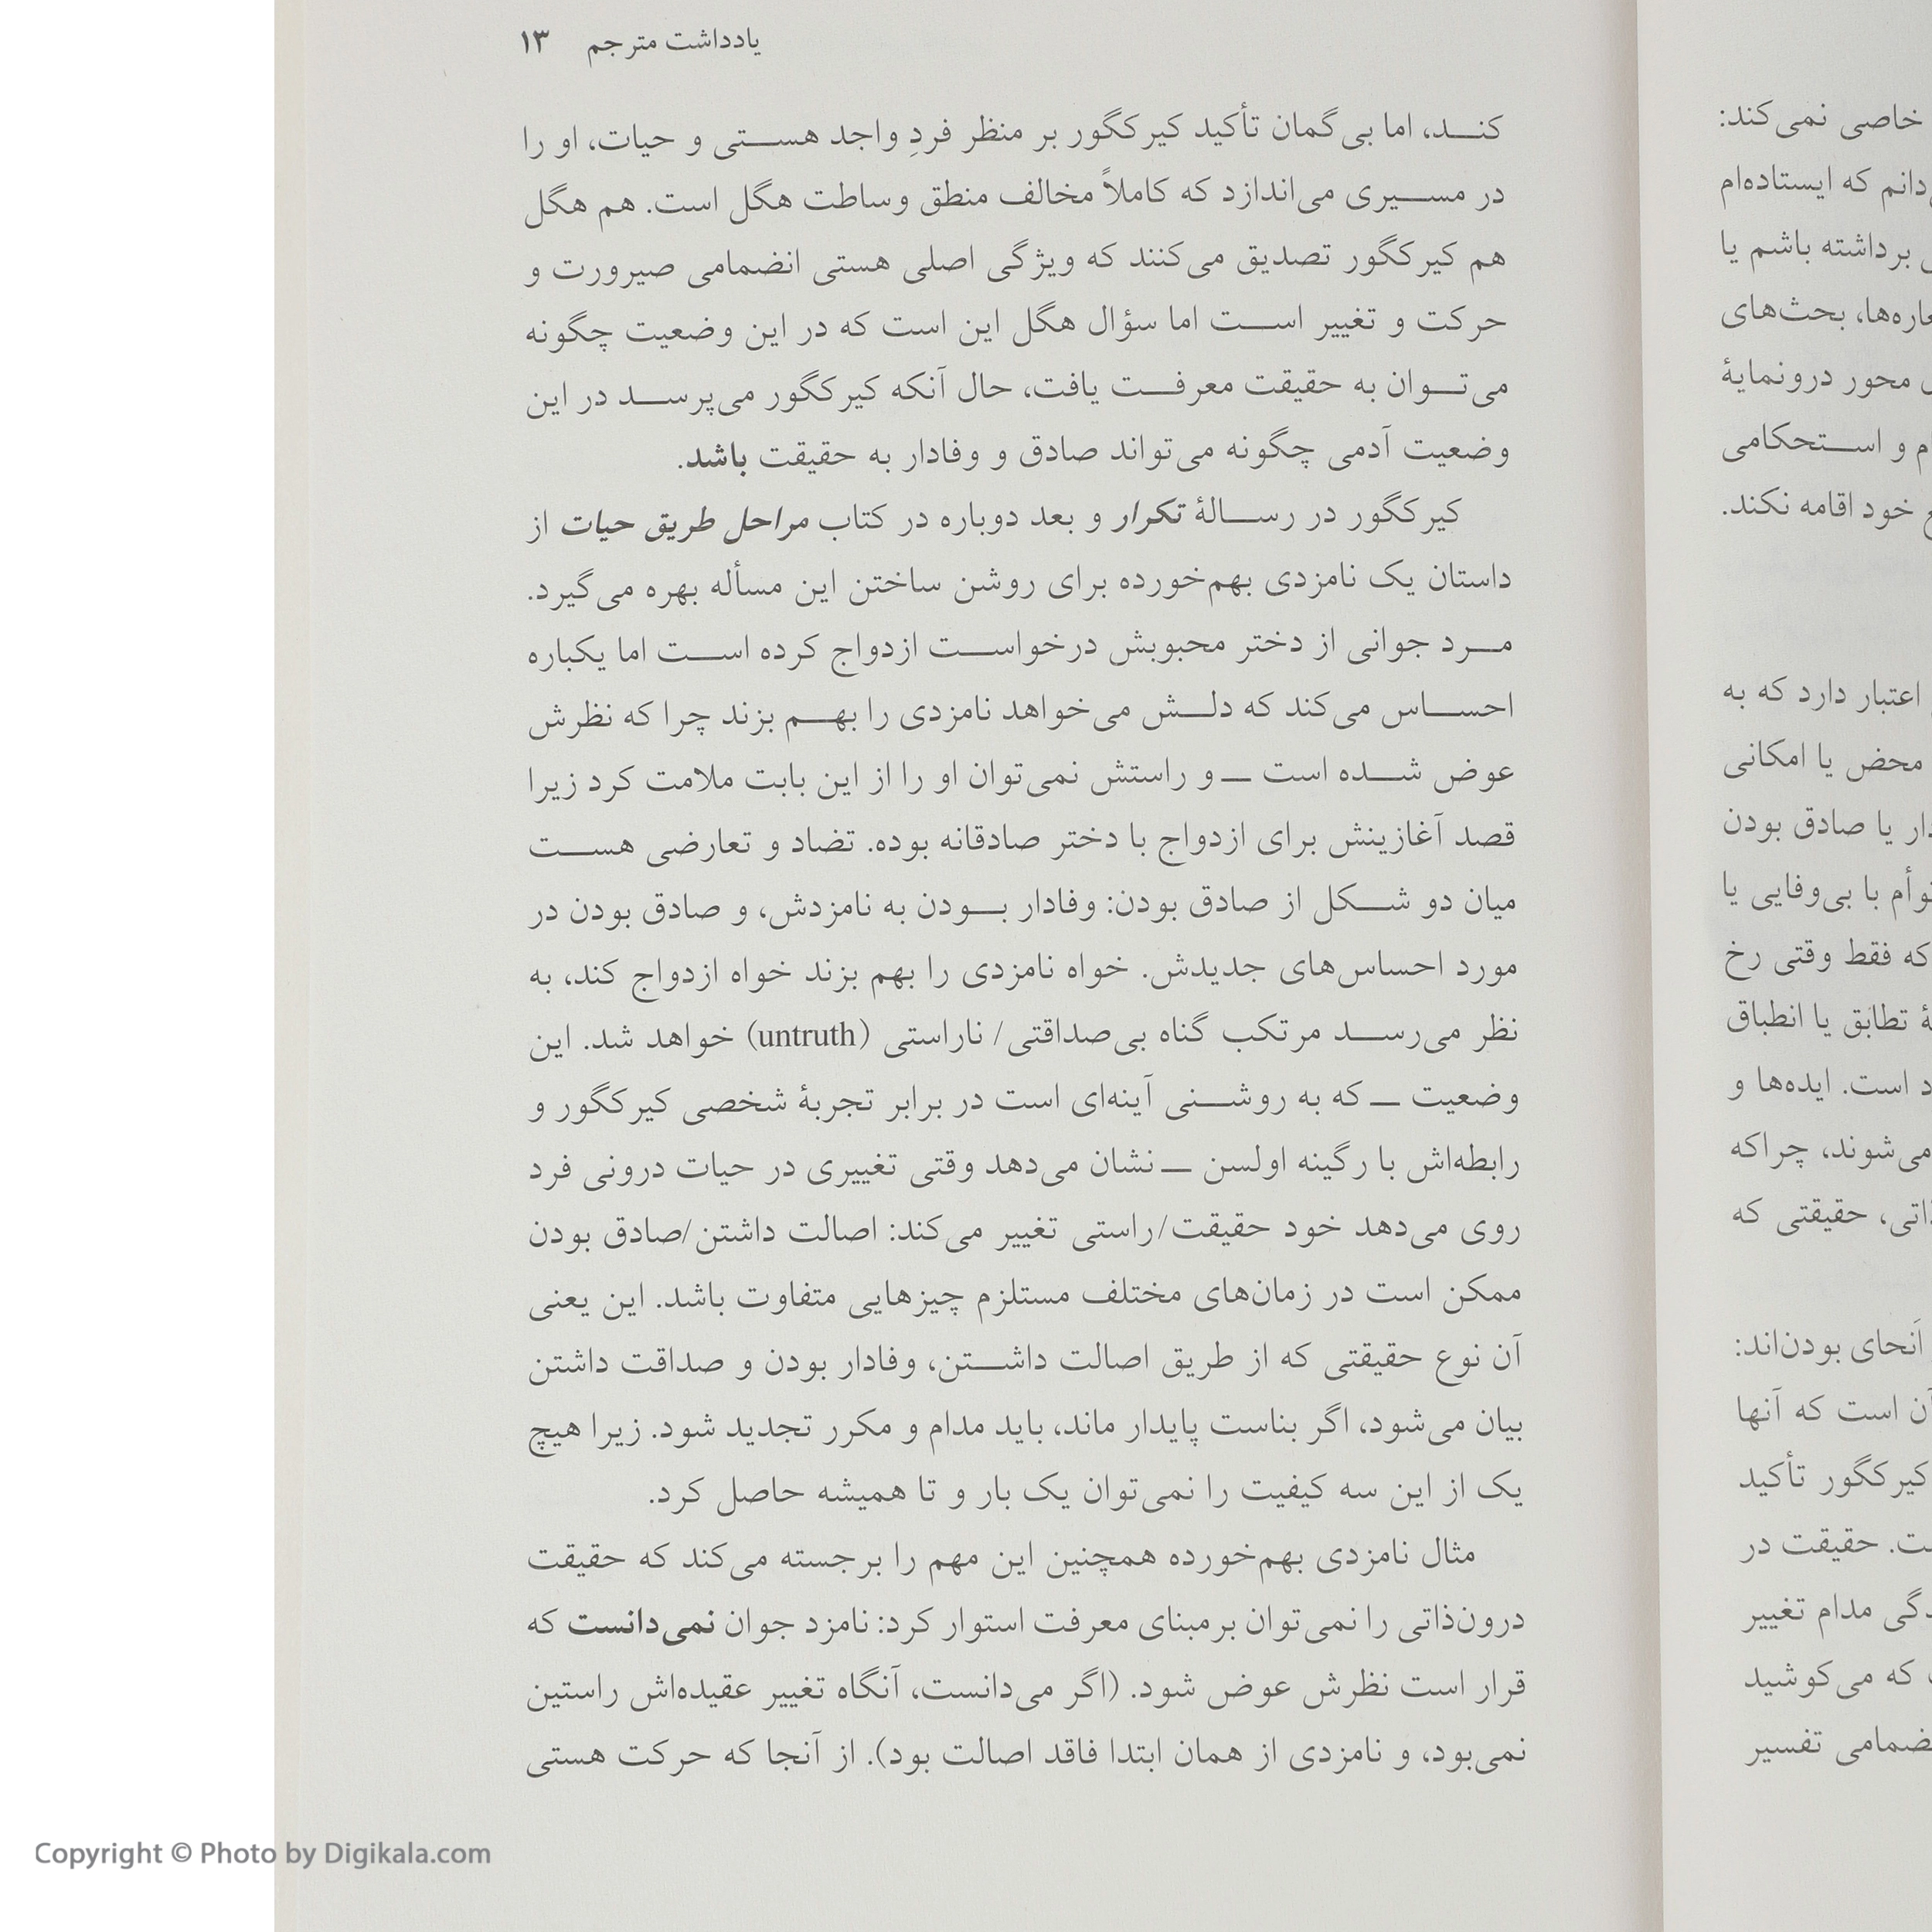 خاصی نمی‌کند:
دانم که ایستاده‌ام
برداشته باشم یا
بحث‌های
محور درونمایهٔ
و استحکامی
خود اقامه نکند.
اعتبار دارد که به
محض یا امکانی
یا صادق بودن
با بی‌وفایی یا
که فقط وقتی رخ
تطابق یا انطباق
است. ایده‌ها و
می‌شوند، چراکه
حقیقتی که
اَنحای بودن‌اند:
آن است که آنها
کیرکگور تأکید
حقیقت در
مدام تغییر
که می‌کوشید
تفسیر
یادداشت مترجم ۱۳
کنـد، اما بی‌گمان تأکید کیرکگور بر منظر فردِ واجد هستی و حیات، او را
در مسیری می‌اندازد که کاملاً مخالف منطق وساطت هگل است. هم هگل
هم کیرکگور تصدیق می‌کنند که ویژگی اصلی هستی انضمامی صیرورت و
حرکت و تغییر است اما سؤال هگل این است که در این وضعیت چگونه
می‌توان به حقیقت معرفت یافت، حال آنکه کیرکگور می‌پرسد در این
وضعیت آدمی چگونه می‌تواند صادق و وفادار به حقیقت باشد.
کیرکگور در رسالهٔ تکرار و بعد دوباره در کتاب مراحل طریق حیات از
داستان یک نامزدی بهم‌خورده برای روشن ساختن این مسأله بهره می‌گیرد.
مرد جوانی از دختر محبوبش درخواست ازدواج کرده است اما یکباره
احساس می‌کند که دلش می‌خواهد نامزدی را بهم بزند چرا که نظرش
عوض شده است ــ و راستش نمی‌توان او را از این بابت ملامت کرد زیرا
قصد آغازینش برای ازدواج با دختر صادقانه بوده. تضاد و تعارضی هست
میان دو شکل از صادق بودن: وفادار بودن به نامزدش، و صادق بودن در
مورد احساس‌های جدیدش. خواه نامزدی را بهم بزند خواه ازدواج کند، به
نظر می‌رسد مرتکب گناه بی‌صداقتی/ ناراستی (untruth) خواهد شد. این
وضعیت ــ که به روشنی آینه‌ای است در برابر تجربهٔ شخصی کیرکگور و
رابطه‌اش با رگینه اولسن ــ نشان می‌دهد وقتی تغییری در حیات درونی فرد
روی می‌دهد خود حقیقت/راستی تغییر می‌کند: اصالت داشتن/صادق بودن
ممکن است در زمان‌های مختلف مستلزم چیزهایی متفاوت باشد. این یعنی
آن نوع حقیقتی که از طریق اصالت داشتن، وفادار بودن و صداقت داشتن
بیان می‌شود، اگر بناست پایدار ماند، باید مدام و مکرر تجدید شود. زیرا هیچ
یک از این سه کیفیت را نمی‌توان یک بار و تا همیشه حاصل کرد.
مثال نامزدی بهم‌خورده همچنین این مهم را برجسته می‌کند که حقیقت
درون‌ذاتی را نمی‌توان برمبنای معرفت استوار کرد: نامزد جوان نمی‌دانست که
قرار است نظرش عوض شود. (اگر می‌دانست، آنگاه تغییر عقیده‌اش راستین
نمی‌بود، و نامزدی از همان ابتدا فاقد اصالت بود). از آنجا که حرکت هستی
Copyright © Photo by Digikala.com